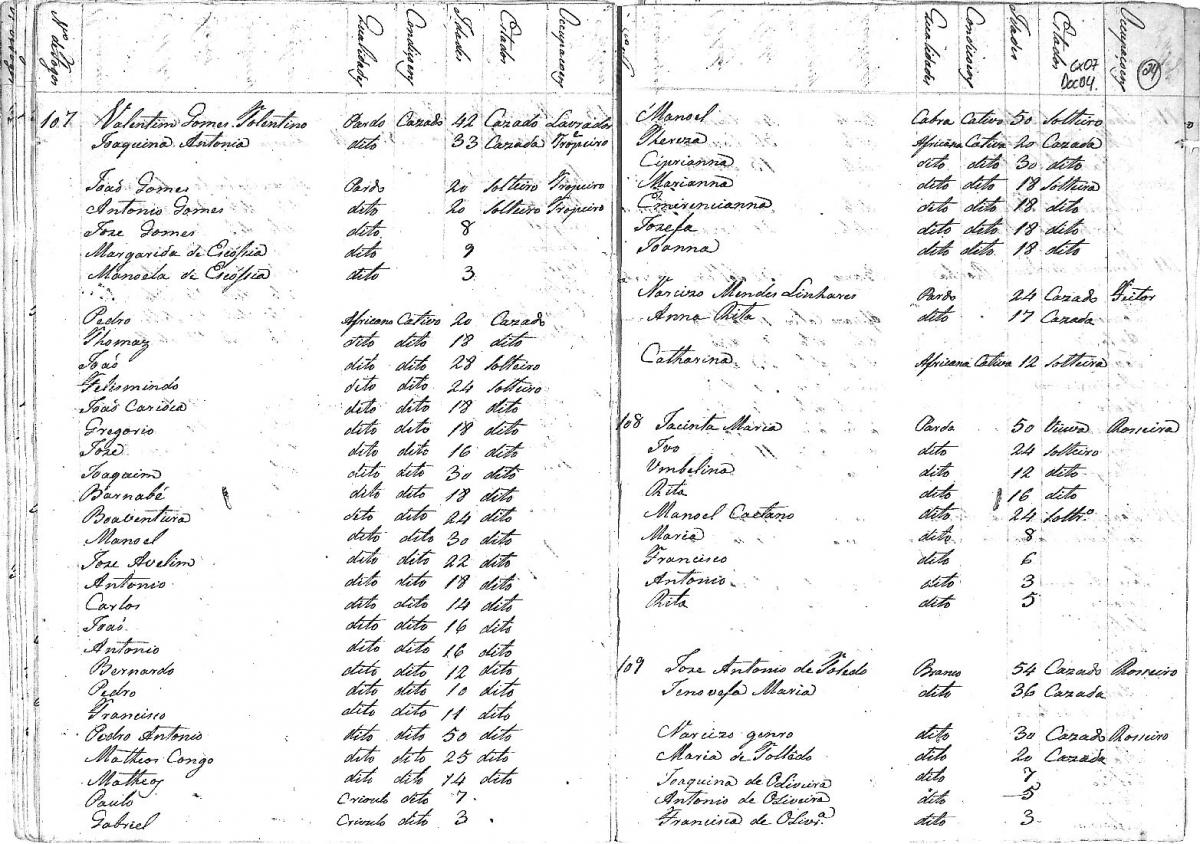 Nos. de Fogos Qualidades Condiçoens Idades Estados Occupaçoens
107 Valentim Gomes Tolentino Pardo Cazado 42 Cazado Lavrador
Joaquina Antonia dito 33 Cazada Tropeiro
João Gomes Pardo 20 Solteiro Tropeiro
Antonio Gomes dito 20 Solteiro Tropeiro
Jose Gomes dito 8
Margarida de dito 9
Manoela de dito 3
Pedro Africano Cativo 20 Cazado
Thomaz dito dito 18 dito
João dito dito 28 Solteiro
Felismindo dito dito 24 Solteiro
João Carioca dito dito 18 dito
Gregorio dito dito 18 dito
Jose dito dito 16 dito
Joaquim dito dito 30 dito
Barnabé dito dito 18 dito
Boaventura dito dito 24 dito
Manoel dito dito 30 dito
Jose Avelim dito dito 22 dito
Antonio dito dito 18 dito
Carlos dito dito 14 dito
João dito dito 16 dito
Antonio dito dito 16 dito
Bernardo dito dito 12 dito
Pedro dito dito 10 dito
Francisco dito dito 11 dito
Pedro Antonio dito dito 50 dito
Matheos Congo dito dito 25 dito
Matheos dito dito 14 dito
Paulo Crioulo dito 7
Gabriel Crioulo dito 3
Qualidades Condiçoens Idades Estados Occupaçoens
24
Cx07
Doc04.
Manoel Cabra Cativo 50 Solteiro
Thereza Africana Cativa 20 Cazada
Ciprianna dito dito 30 dito
Marianna dito dito 18 Solteira
Emerencianna dito dito 18 dito
Jozefa dito dito 18 dito
Joanna dito dito 18 dito
Narcizo Mendes Linhares Pardo 24 Cazado Feitor
Anna Rita dito 17 Cazada
Catharina Africana Cativa 12 Solteira
108 Jacinta Maria Parda 50 Viuva Rosseira
Ivo dito 24 Solteiro
Umbelina dito 12 dito
Rita dito 16 dito
Manoel Caetano dito 24 Soltr.o
Maria dito 8
Francisco dito 6
Antonio dito 3
Rita dito 5
109 Jose Antonio de Toledo Branco 54 Cazado Rosseiro
Jenovefa Maria dito 36 Cazada
Narcizo genro dito 30 Cazado Rosseiro
Maria de Tolledo dito 20 Cazada
Joaquina de Oliveira dito 7
Antonio de Oliveira dito 5
Francisca de Olivr.a dito 3